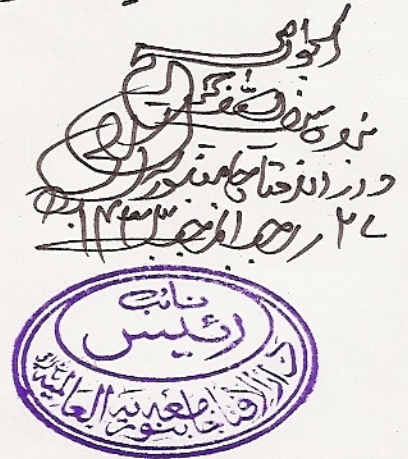 الجواب صحیح
بندہ سیف اللہ
دار الافتاء جامعہ بنوریہ
٢٧ رجب المرجب ١٤٣٣ھ
نائب
رئیس
دار الافتاء جامعہ بنوریہ العالمیہ